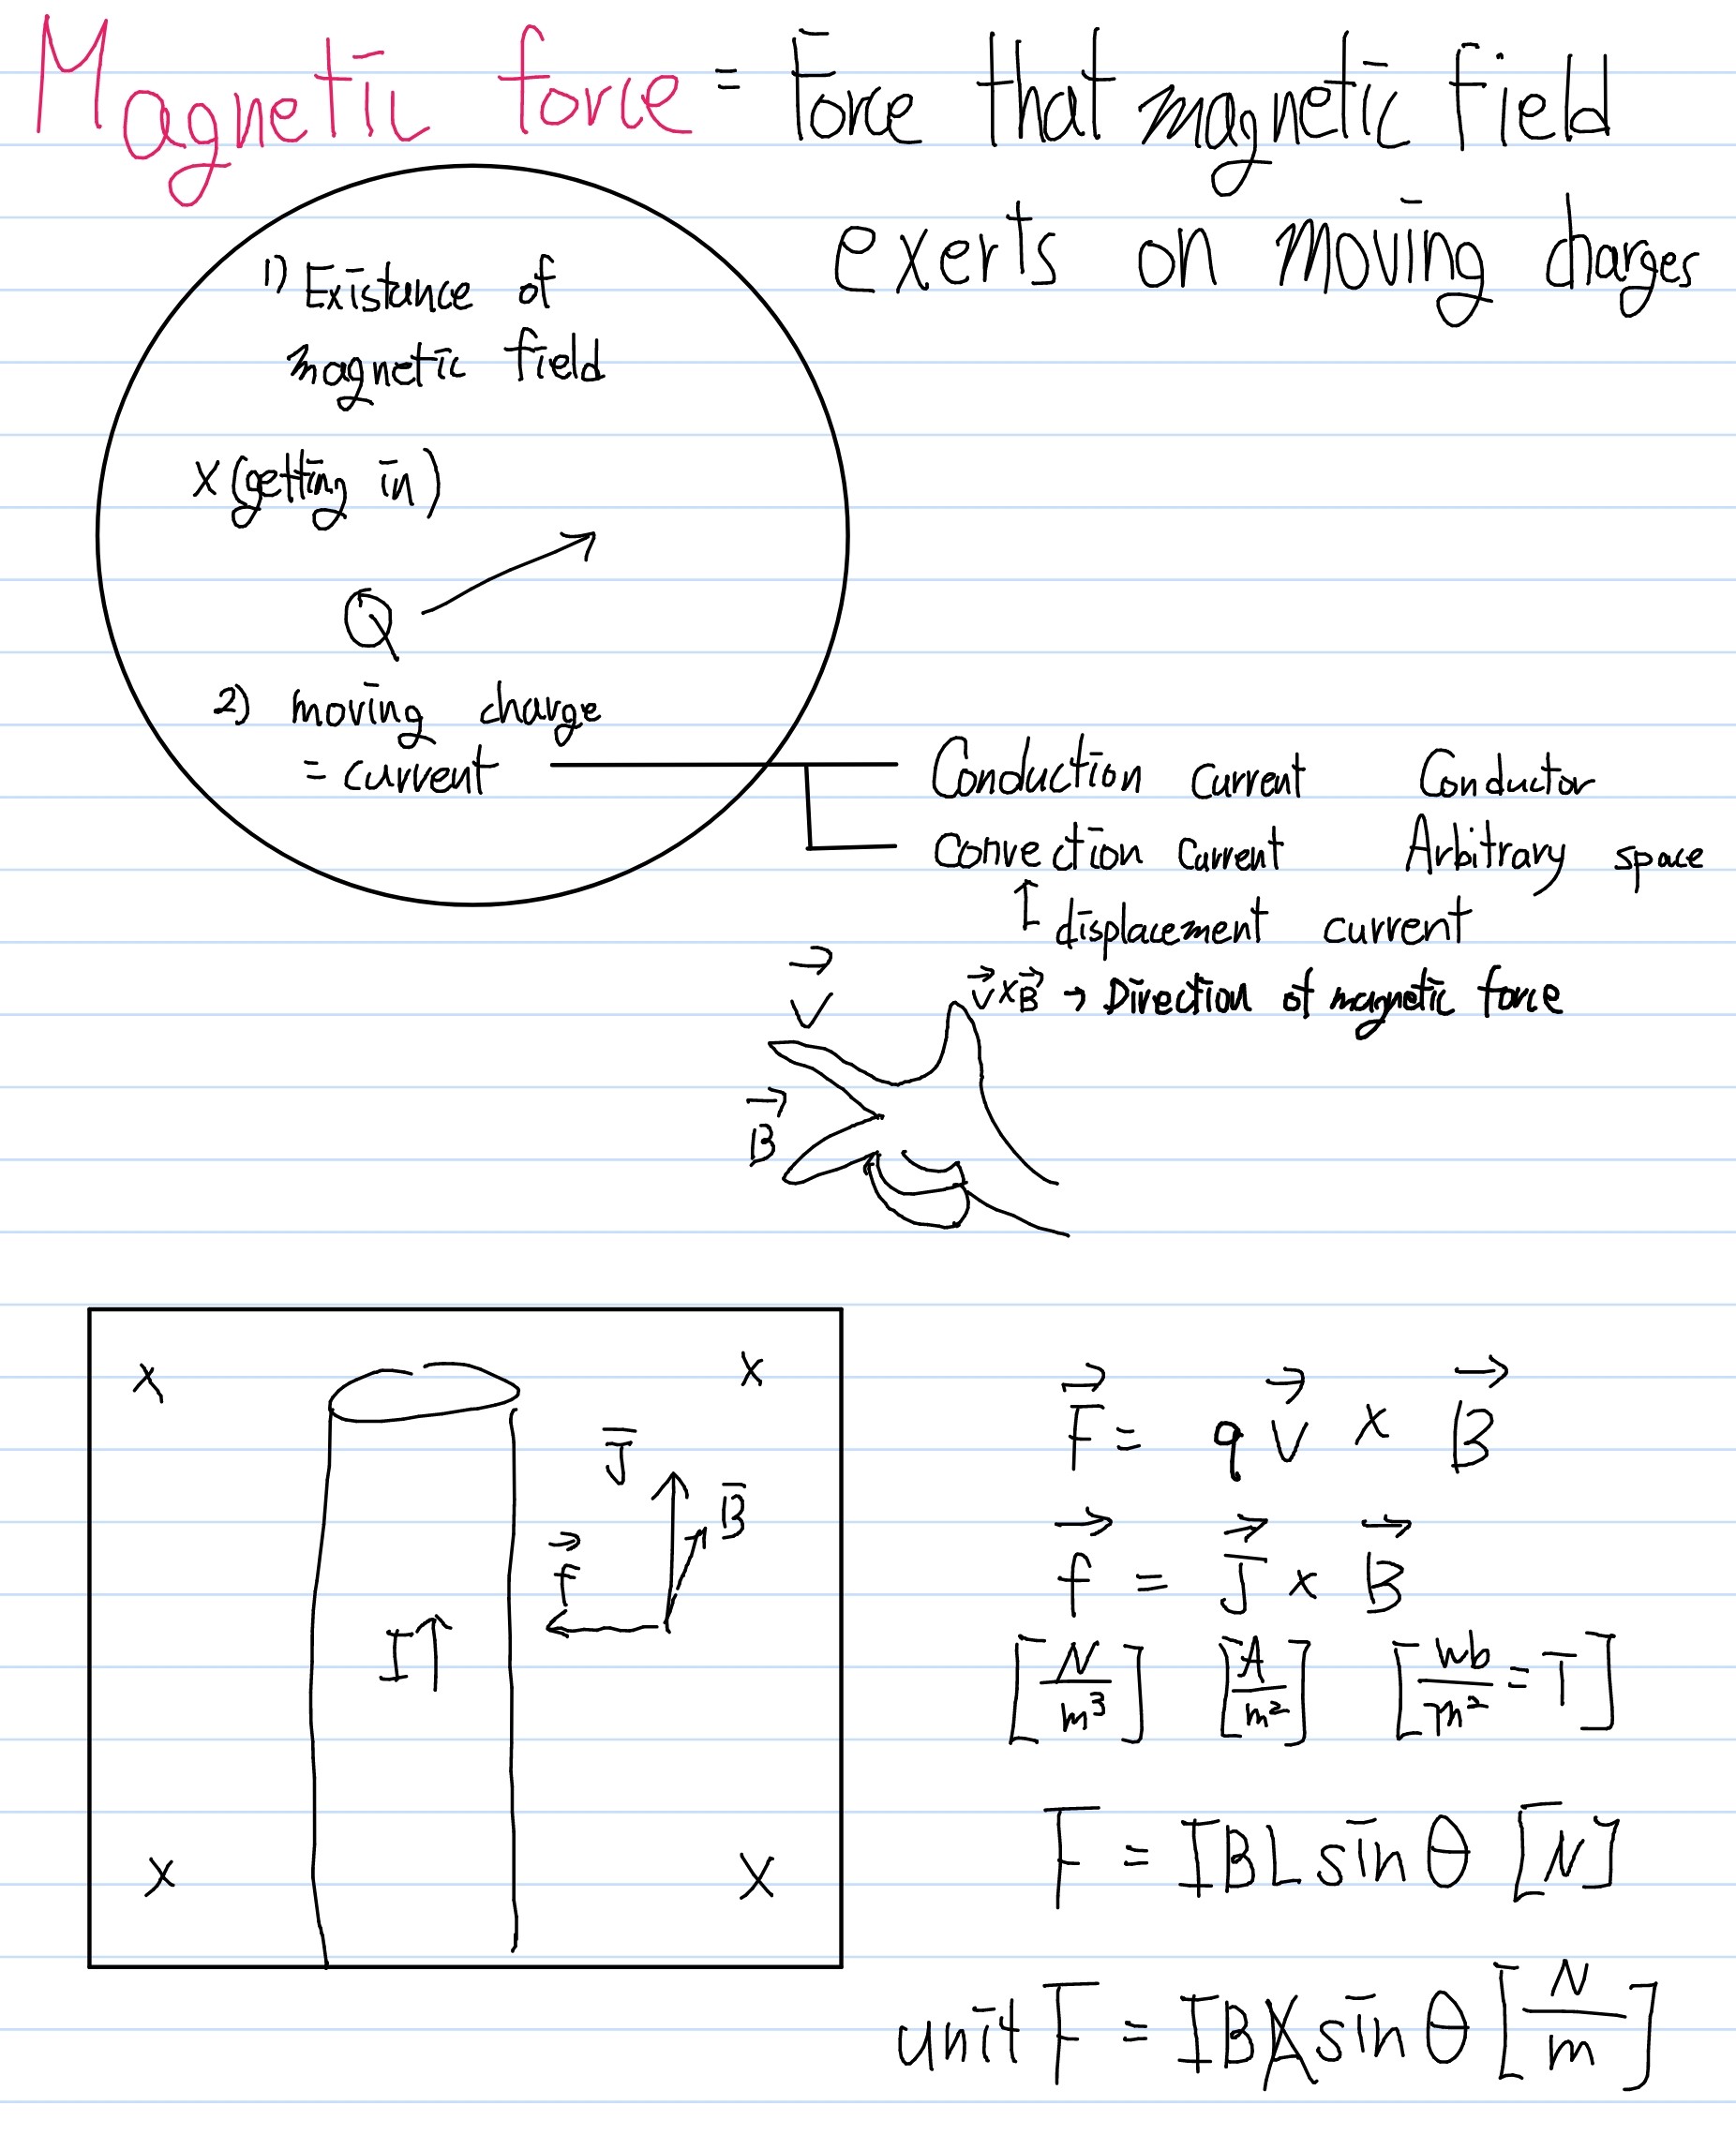 Magnetic force = Force that magnetic field
exerts on moving charges
1) Existance of
magnetic field
X (getting in)
Q
2) moving charge
= current
Conduction current Conductor
Convection current Arbitrary space
↑ displacement current
V⃗
V⃗×B⃗ → Direction of magnetic force
B⃗
x x
J̅
B̅
f⃗
I↑
x x
F⃗ = qV⃗ × B⃗
f⃗ = J⃗ × B⃗
[N/m³] [A/m²] [Wb/m² = T]
F = IBL sin θ [N]
unit F = IBL̸ sin θ [N/m]